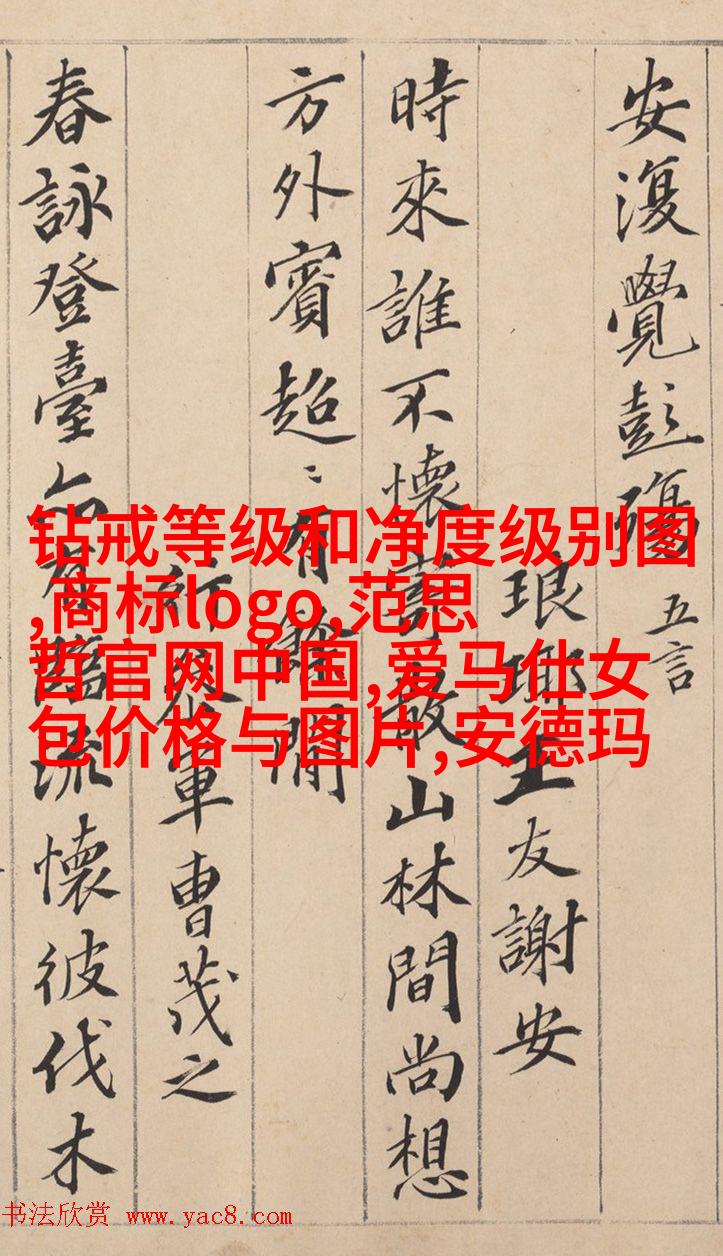 安復覺彭殤 五言
琅琊王友謝安
時來誰不懷寄散山林間尚想
方外賓超〻有餘閒
行參軍曹茂之
春詠登臺亦有臨流懷彼伐木
钻戒等级和净度级别图
,商标logo,范思
哲官网中国,爱马仕女
包价格与图片,安德玛
书法欣赏 www.yac8.com